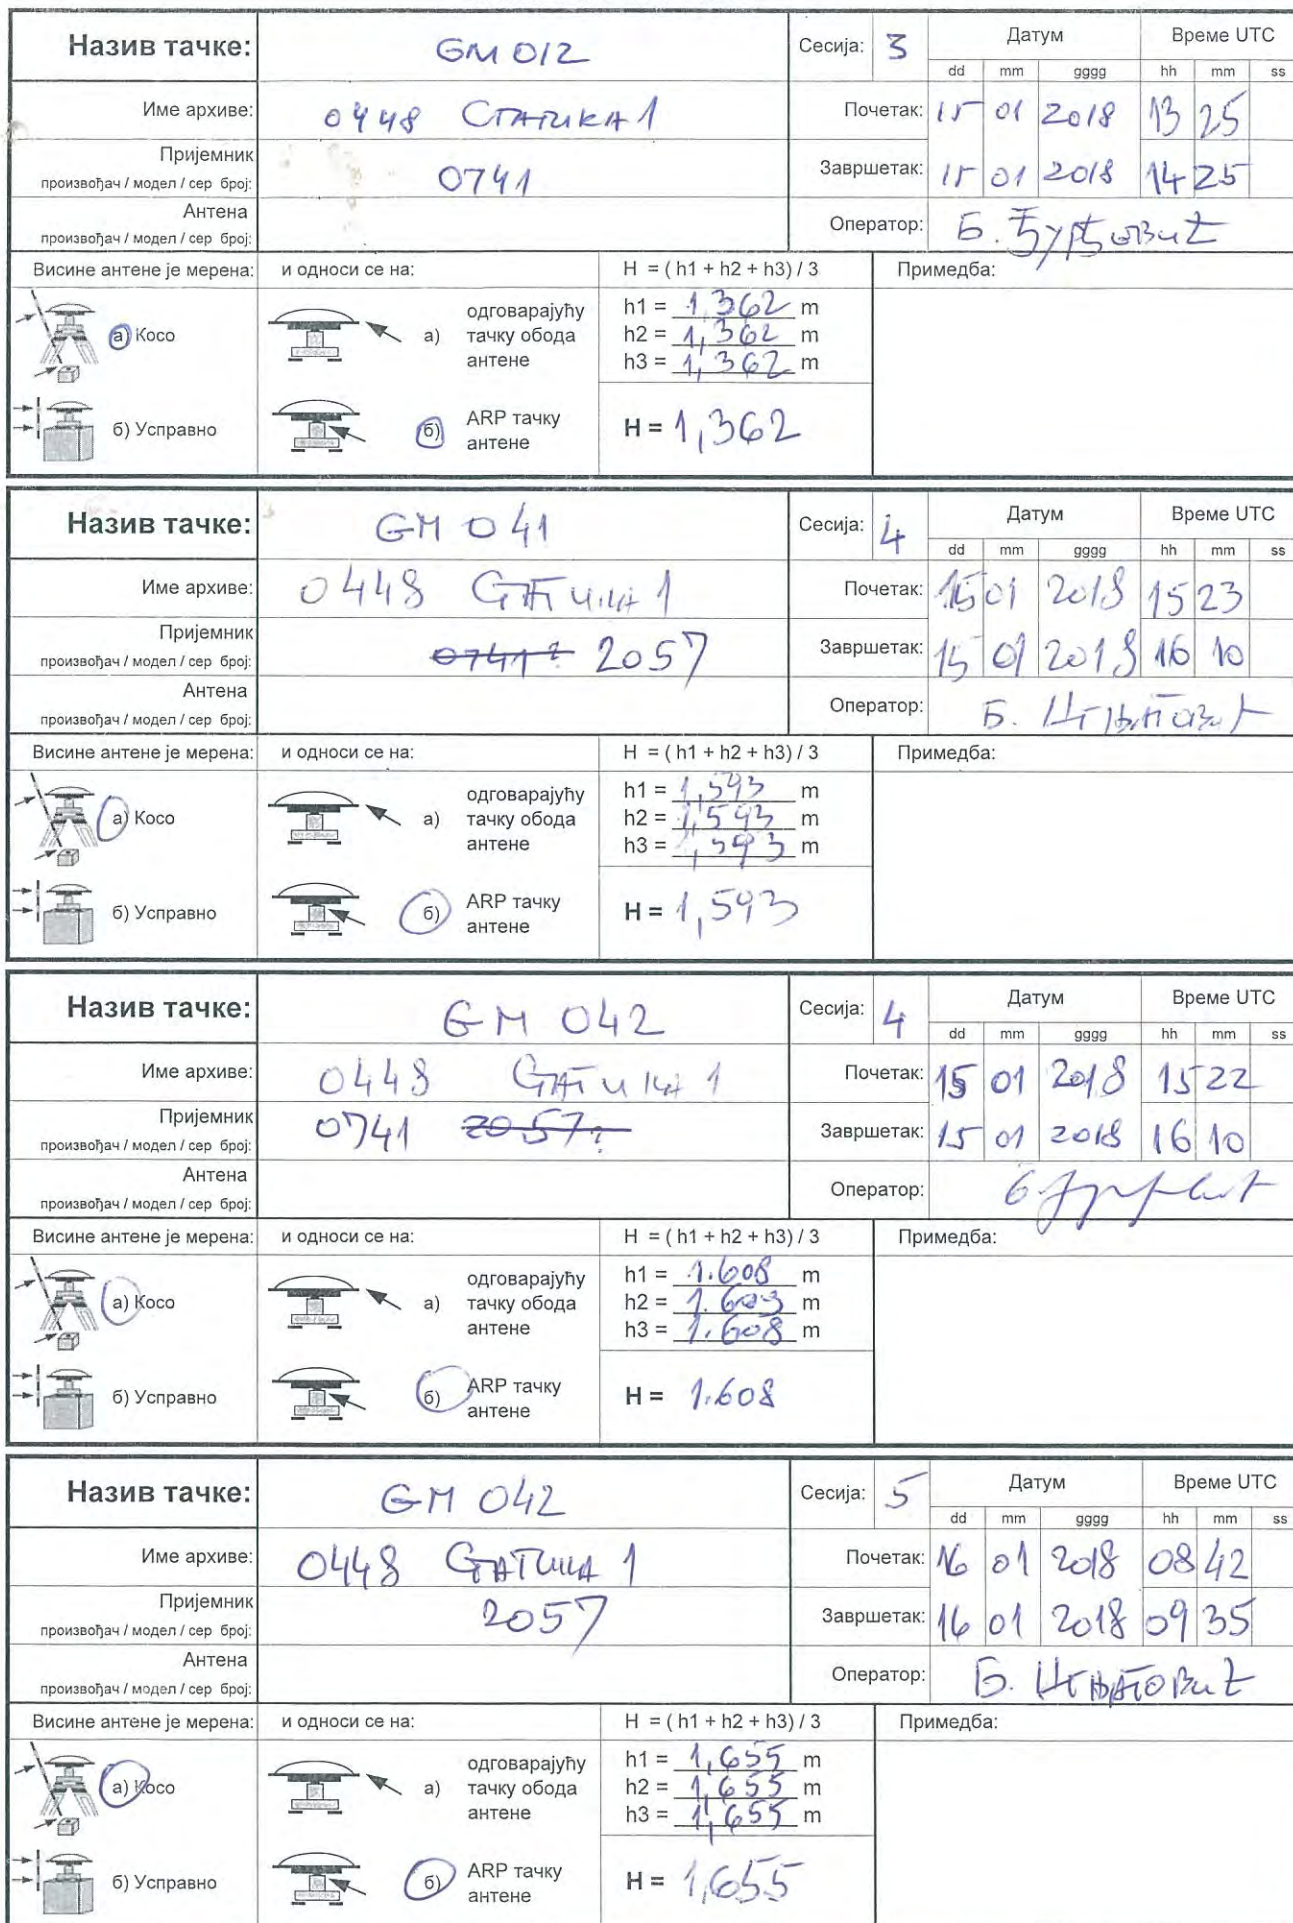 Назив тачке: GM 012 Сесија: 3 Датум Време UTC
dd mm gggg hh mm ss
Име архиве: 0448 СТАТИКА 1 Почетак: 15 01 2018 13 25
Пријемник
произвођач / модел / сер број: 0741 Завршетак: 15 01 2018 14 25
Антена
произвођач / модел / сер број: Оператор: Б. Ђурђевић
Висине антене је мерена: и односи се на: H = ( h1 + h2 + h3 ) / 3 Примедба:
а) Косо а) одговарајућу тачку обода антене
h1 = 1,362 m
h2 = 1,362 m
h3 = 1,362 m
б) Усправно б) ARP тачку антене H = 1,362
Назив тачке: GM 041 Сесија: 4 Датум Време UTC
dd mm gggg hh mm ss
Име архиве: 0448 СТАТИКА 1 Почетак: 15 01 2018 15 23
Пријемник
произвођач / модел / сер број: 0741? 2057 Завршетак: 15 01 2018 16 10
Антена
произвођач / модел / сер број: Оператор: Б.
Висине антене је мерена: и односи се на: H = ( h1 + h2 + h3 ) / 3 Примедба:
а) Косо а) одговарајућу тачку обода антене
h1 = 1,593 m
h2 = 1,593 m
h3 = 1,593 m
б) Усправно б) ARP тачку антене H = 1,593
Назив тачке: GM 042 Сесија: 4 Датум Време UTC
dd mm gggg hh mm ss
Име архиве: 0448 СТАТИКА 1 Почетак: 15 01 2018 15 22
Пријемник
произвођач / модел / сер број: 0741 2057? Завршетак: 15 01 2018 16 10
Антена
произвођач / модел / сер број: Оператор:
Висине антене је мерена: и односи се на: H = ( h1 + h2 + h3 ) / 3 Примедба:
а) Косо а) одговарајућу тачку обода антене
h1 = 1.608 m
h2 = 1.608 m
h3 = 1.608 m
б) Усправно б) ARP тачку антене H = 1.608
Назив тачке: GM 042 Сесија: 5 Датум Време UTC
dd mm gggg hh mm ss
Име архиве: 0448 СТАТИКА 1 Почетак: 16 01 2018 08 42
Пријемник
произвођач / модел / сер број: 2057 Завршетак: 16 01 2018 09 35
Антена
произвођач / модел / сер број: Оператор: Б.
Висине антене је мерена: и односи се на: H = ( h1 + h2 + h3 ) / 3 Примедба:
а) Косо а) одговарајућу тачку обода антене
h1 = 1,655 m
h2 = 1,655 m
h3 = 1,655 m
б) Усправно б) ARP тачку антене H = 1,655